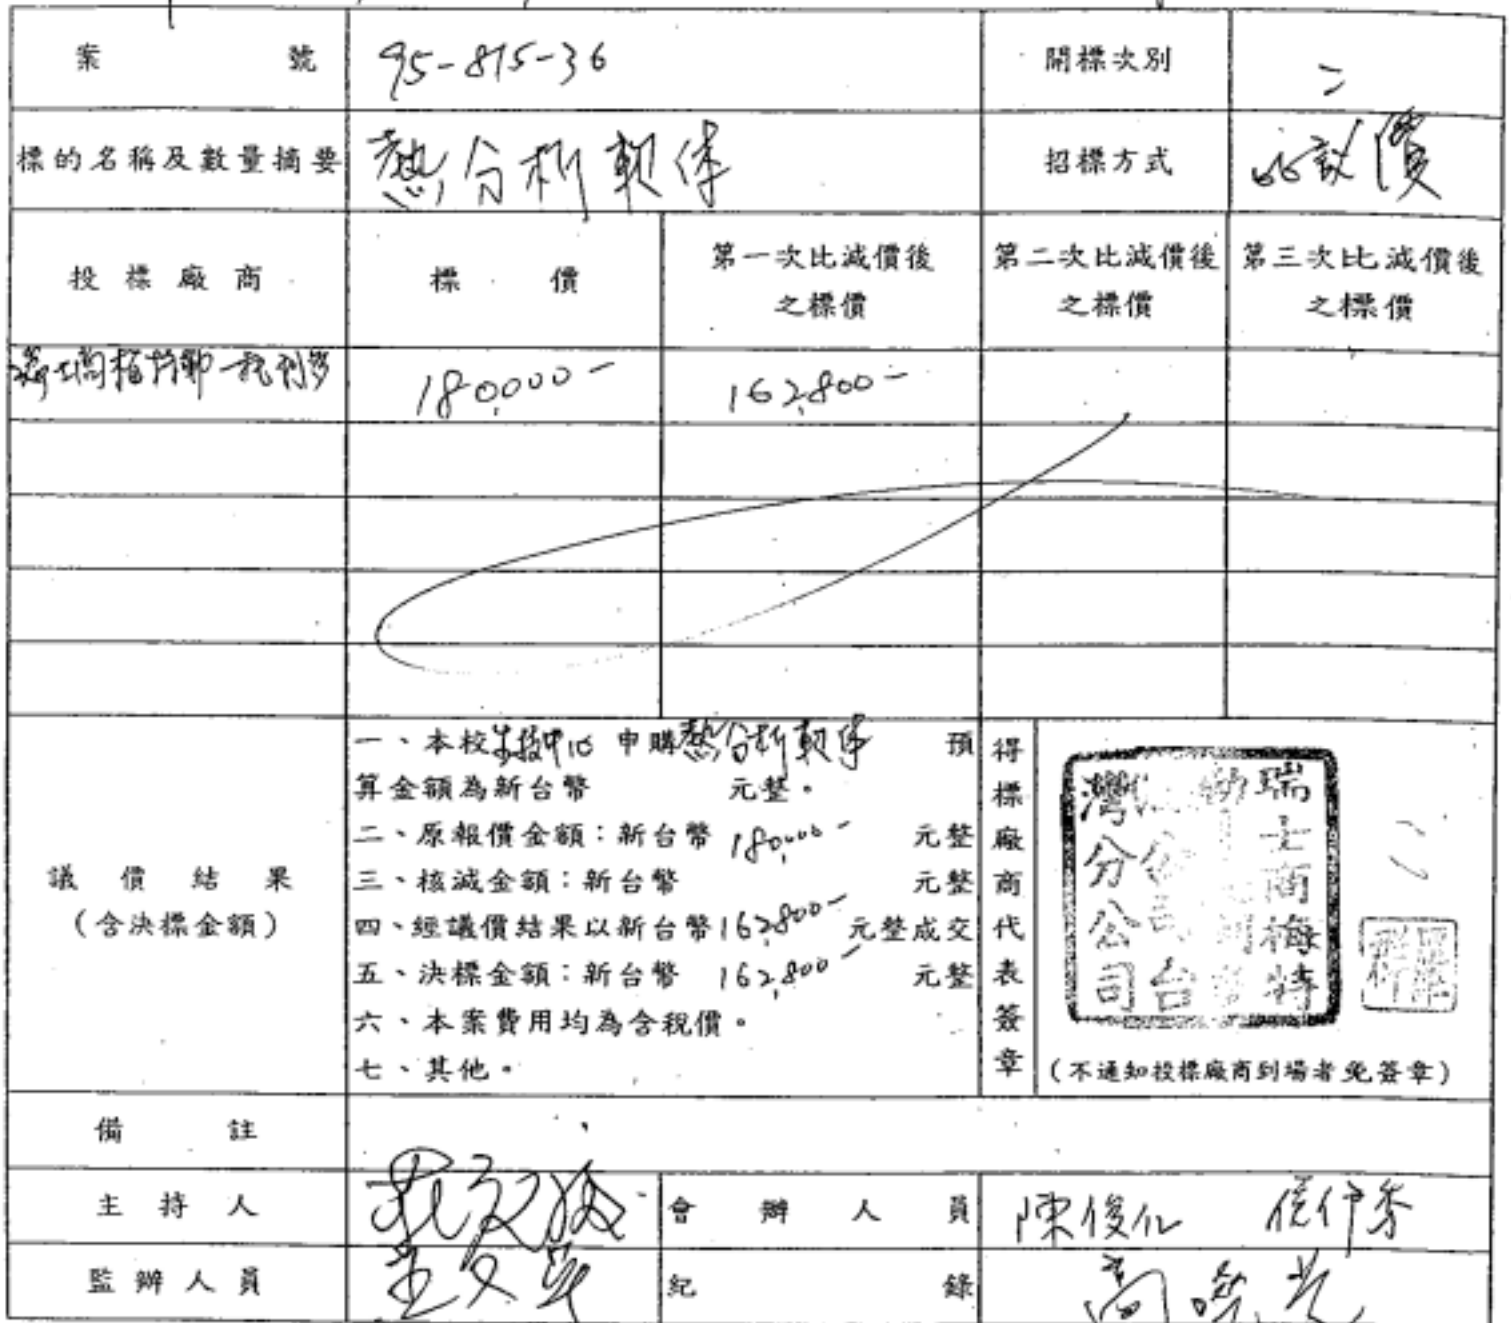 案號 95-815-36 開標次別 二
標的名稱及數量摘要 熱分析軟体 招標方式 議價
投標廠商 標價 第一次比減價後之標價 第二次比減價後之標價 第三次比減價後之標價
瑞士商梅特勒-托利多 180,000- 162,800-
議價結果
(含決標金額)
一、本校 申購熱分析軟体 預
算金額為新台幣 元整。
二、原報價金額：新台幣 180,000- 元整
三、核減金額：新台幣 元整
四、經議價結果以新台幣162,800- 元整成交
五、決標金額：新台幣 162,800- 元整
六、本案費用均為含稅價。
七、其他。
得標廠商代表簽章
瑞士商梅特
灣分公司
(不通知投標廠商到場者免簽章)
備註
主持人 會辦人員 陳俊
監辦人員 紀錄